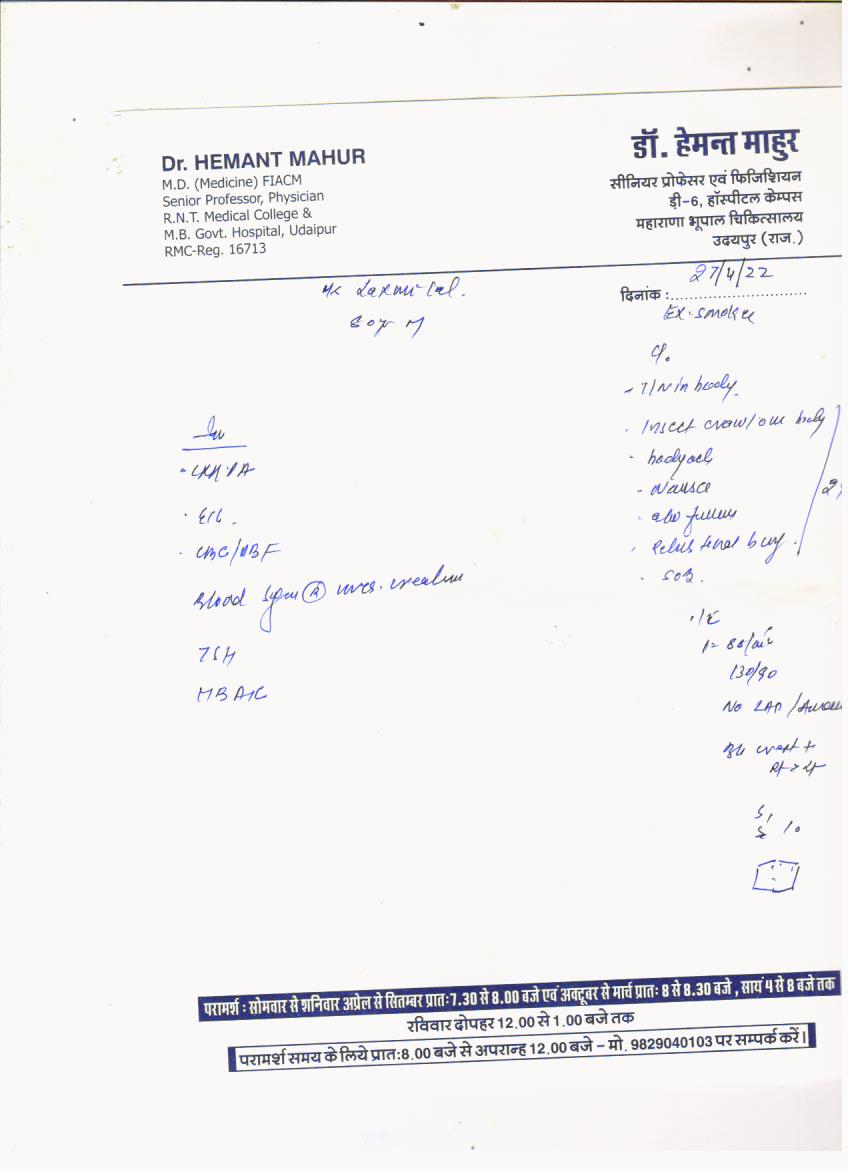 Dr. HEMANT MAHUR
M.D. (Medicine) FIACM
Senior Professor, Physician
R.N.T. Medical College &
M.B. Govt. Hospital, Udaipur
RMC-Reg. 16713
डॉ. हेमन्त माहुर
सीनियर प्रोफेसर एवं फिजिशियन
ड़ी-6, हॉस्पीटल केम्पस
महाराणा भूपाल चिकित्सालय
उदयपुर (राज.)
दिनांक :27/4/22
Laxmi Lal.
60y M
Ex-smoker
- T/N in body.
- Insect crawl our body
- bodyach
- Nausea
- SOB.
130/90
No LAD
Rt > Lt
S1
S2
Inv
CXR PA
CBC/
Blood Sugar (R)
TSH
HBA1C
परामर्श : सोमवार से शनिवार अप्रेल से सितम्बर प्रातः7.30 से 8.00 बजे एवं अक्टूबर से मार्च प्रातः 8 से 8.30 बजे , सायं 4 से 8 बजे तक
रविवार दोपहर 12.00 से 1.00 बजे तक
परामर्श समय के लिये प्रातः8.00 बजे से अपरान्ह 12.00 बजे – मो. 9829040103 पर सम्पर्क करें।